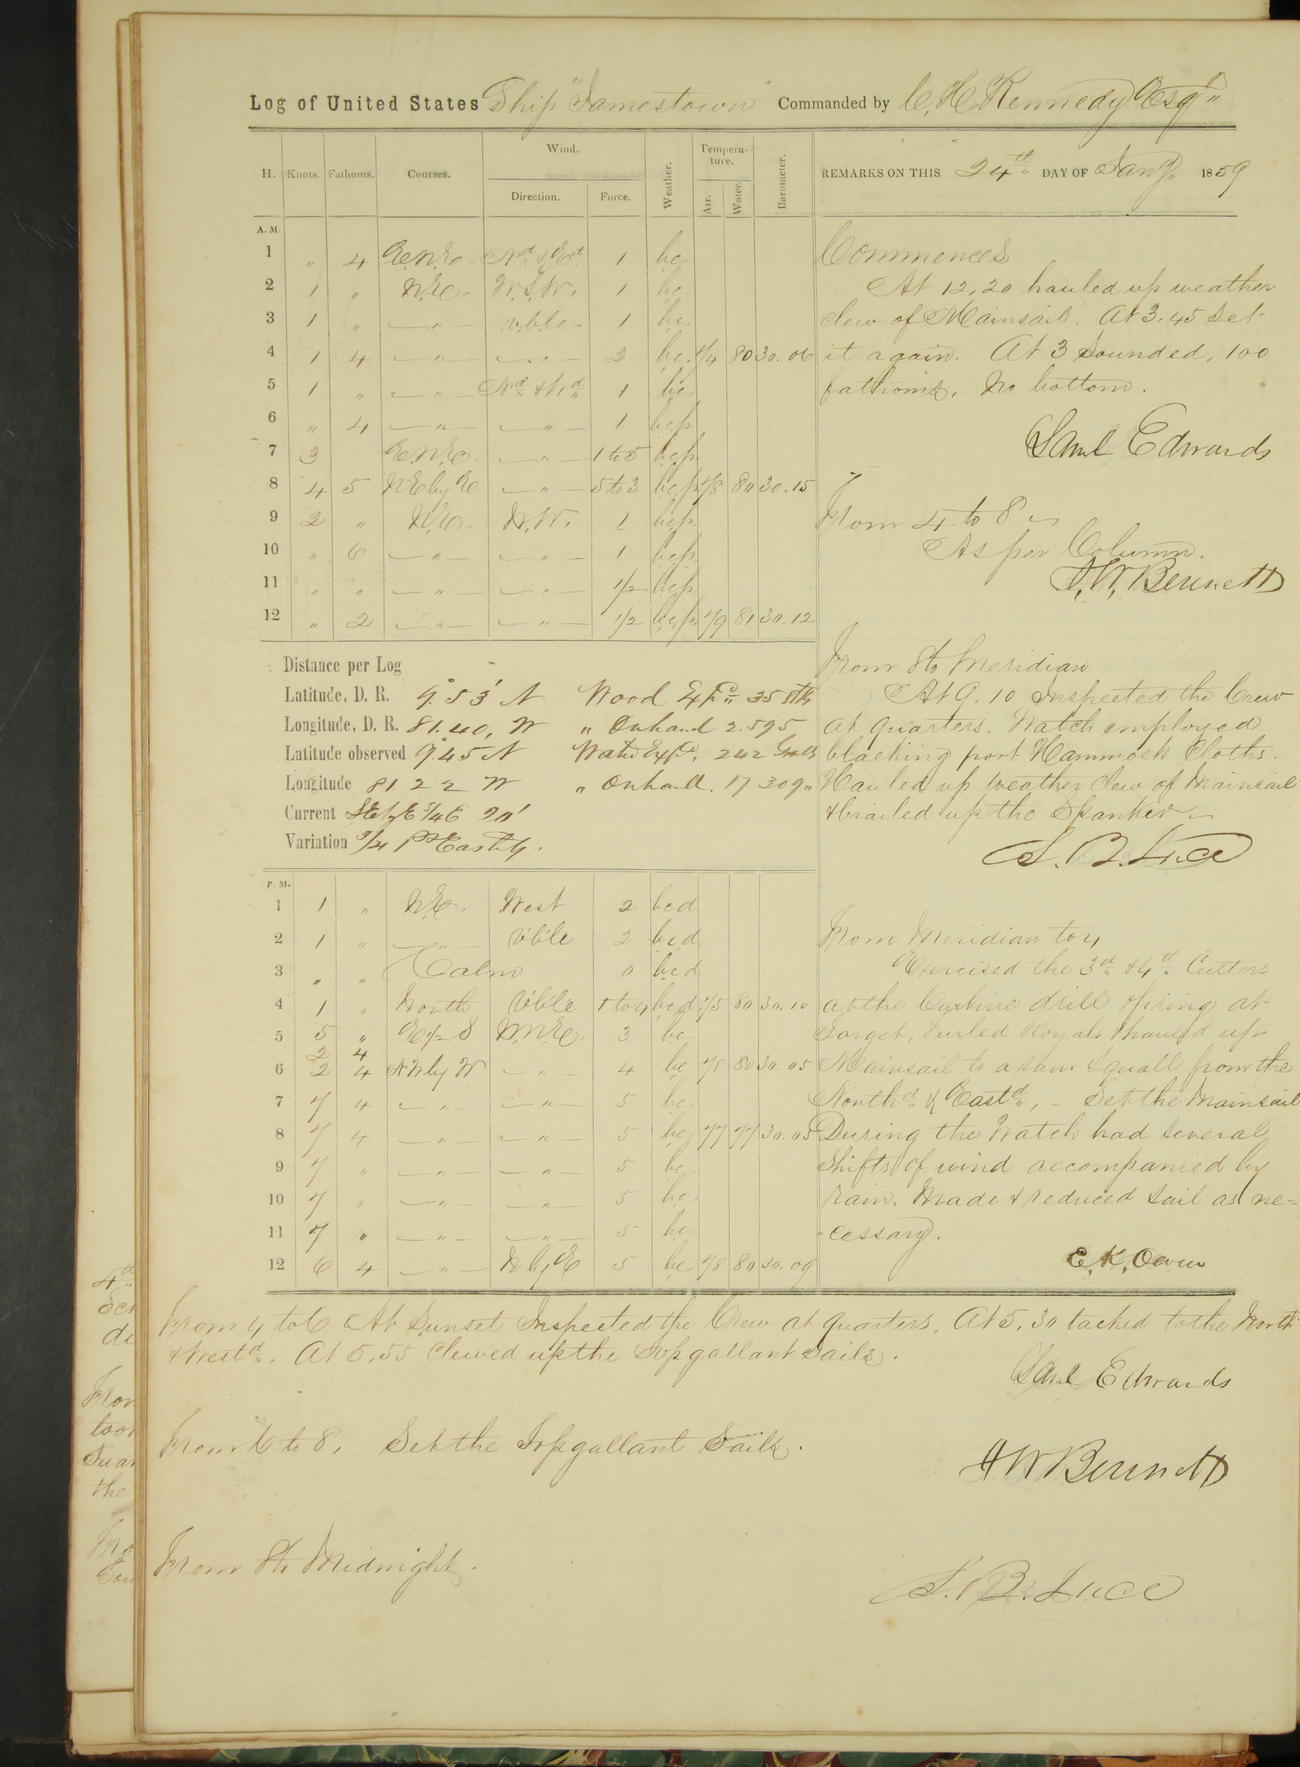 Log of United States Ship "Jamestown" Commanded by C. H. Kennedy Esqr
H. Knots. Fathoms. Courses. Wind. Direction. Force. Weather. Tempera-ture. Air. Water. Barometer. REMARKS ON THIS 24th DAY OF Jany 1859
A. M.
1 " 4 E.N.E. Nd & Ed 1 bc
2 1 " N.E. W.S.W. 1 bc
3 1 " —"— vble 1 bc
4 1 4 —"— —"— 2 bc 80 30.06
5 1 " —"— Nd & Wd 1 bc
6 " 4 —"— —"— 1 bcp
7 3 E.N.E. —"— 1 to 5 bcp
8 4 5 NE by E —"— 5 to 3 bcp 78 80 30.15
9 2 " N.E. N.W. 1 bcp
10 " 6 —"— —"— 1 bcp
11 " " —"— —"— 1/2 bcp
12 " 2 —"— —"— 1/2 bcp 79 81 30.12
Commences
At 12,20 hauled up weather
clew of Mainsail. At 3.45 Set
it again. At 3 Sounded, 100
fathoms. No bottom.
Saml Edwards
From 4 to 8
As per Column.
J. W. Bennett
From 8 to Meridian
At 9.10 Inspected the Crew
at quarters. Watch employed
blacking port Hammock Cloths.
Hauled up weather Clew of Mainsail
& brailed up the Spanker
S. B. Luce
Distance per Log
Latitude, D. R. 9°.53' N Wood Expd 35 stks
Longitude, D. R. 81.40, W " Onhand 2.595
Latitude observed 9°.45 N Water Expd. 242 Galls
Longitude 81 22 W " Onhand. 17 309
Current SE by E 3/4 E 20'
Variation 3/4 Pt Eastly.
P. M.
1 1 " N.E. West 2 bcd
2 1 " —"— Vble 2 bcd
3 " " Calm 0 bcd
4 1 " North Vble 1 to 4 bcd 75 80 30.10
5 5 " E 1/2 S N.N.E. 3 bc
2 4
6 2 4 NW by W —"— 4 bc 78 80 30.05
7 7 4 —"— —"— 5 bc
8 7 4 —"— —"— 5 bc 77 77 30.05
9 7 " —"— —"— 5 bc
10 7 " —"— —"— 5 bc
11 7 " —"— —"— 5 bc
12 6 4 —"— N by E 5 bc 78 80 30.09
From Meridian to 4
Exercised the 3d & 4th Cutters
at the Carbine drill & firing at
Target, Furled Royals & hauled up
Mainsail to a rain squall from the
Northd & Eastd, - Set the Mainsail
During the Watch had several
shifts of wind accompanied by
rain. Made & reduced sail as ne=
cessary.
E. K. Owen
From 4 to 6 At Sunset Inspected the Crew at quarters. At 5.30 tacked to the North
& Westd. At 5.55 Clewed up the Topgallant Sails.
Saml Edwards
From 6 to 8, Set the Topgallant Sails.
J W Bennett
From 8 to Midnight.
S. B. Luce